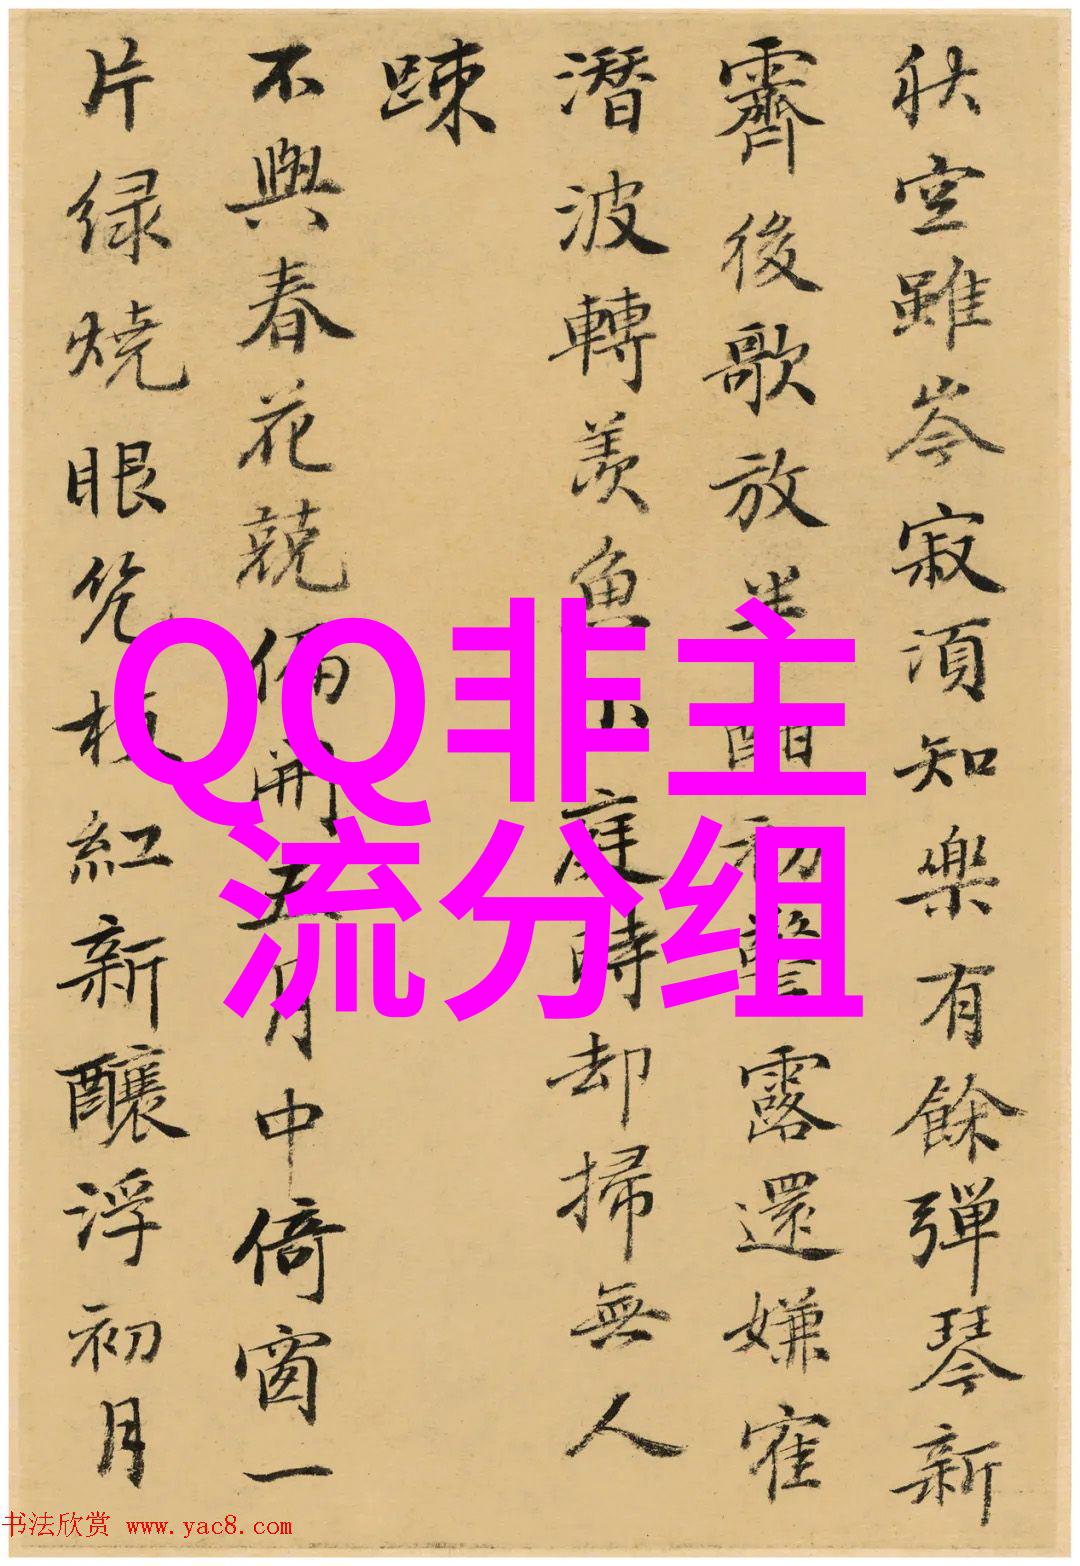 秋空雖岑寂須知樂有餘彈琴新
霽後歌放半酣初警露還嫌寉
潛波轉羨魚庭時却掃無人
踈
不與春花競偏開五月中倚窗一
片緑燒眼枝紅新釀浮初月
QQ非主
流分组
书法欣赏 www.yac8.com